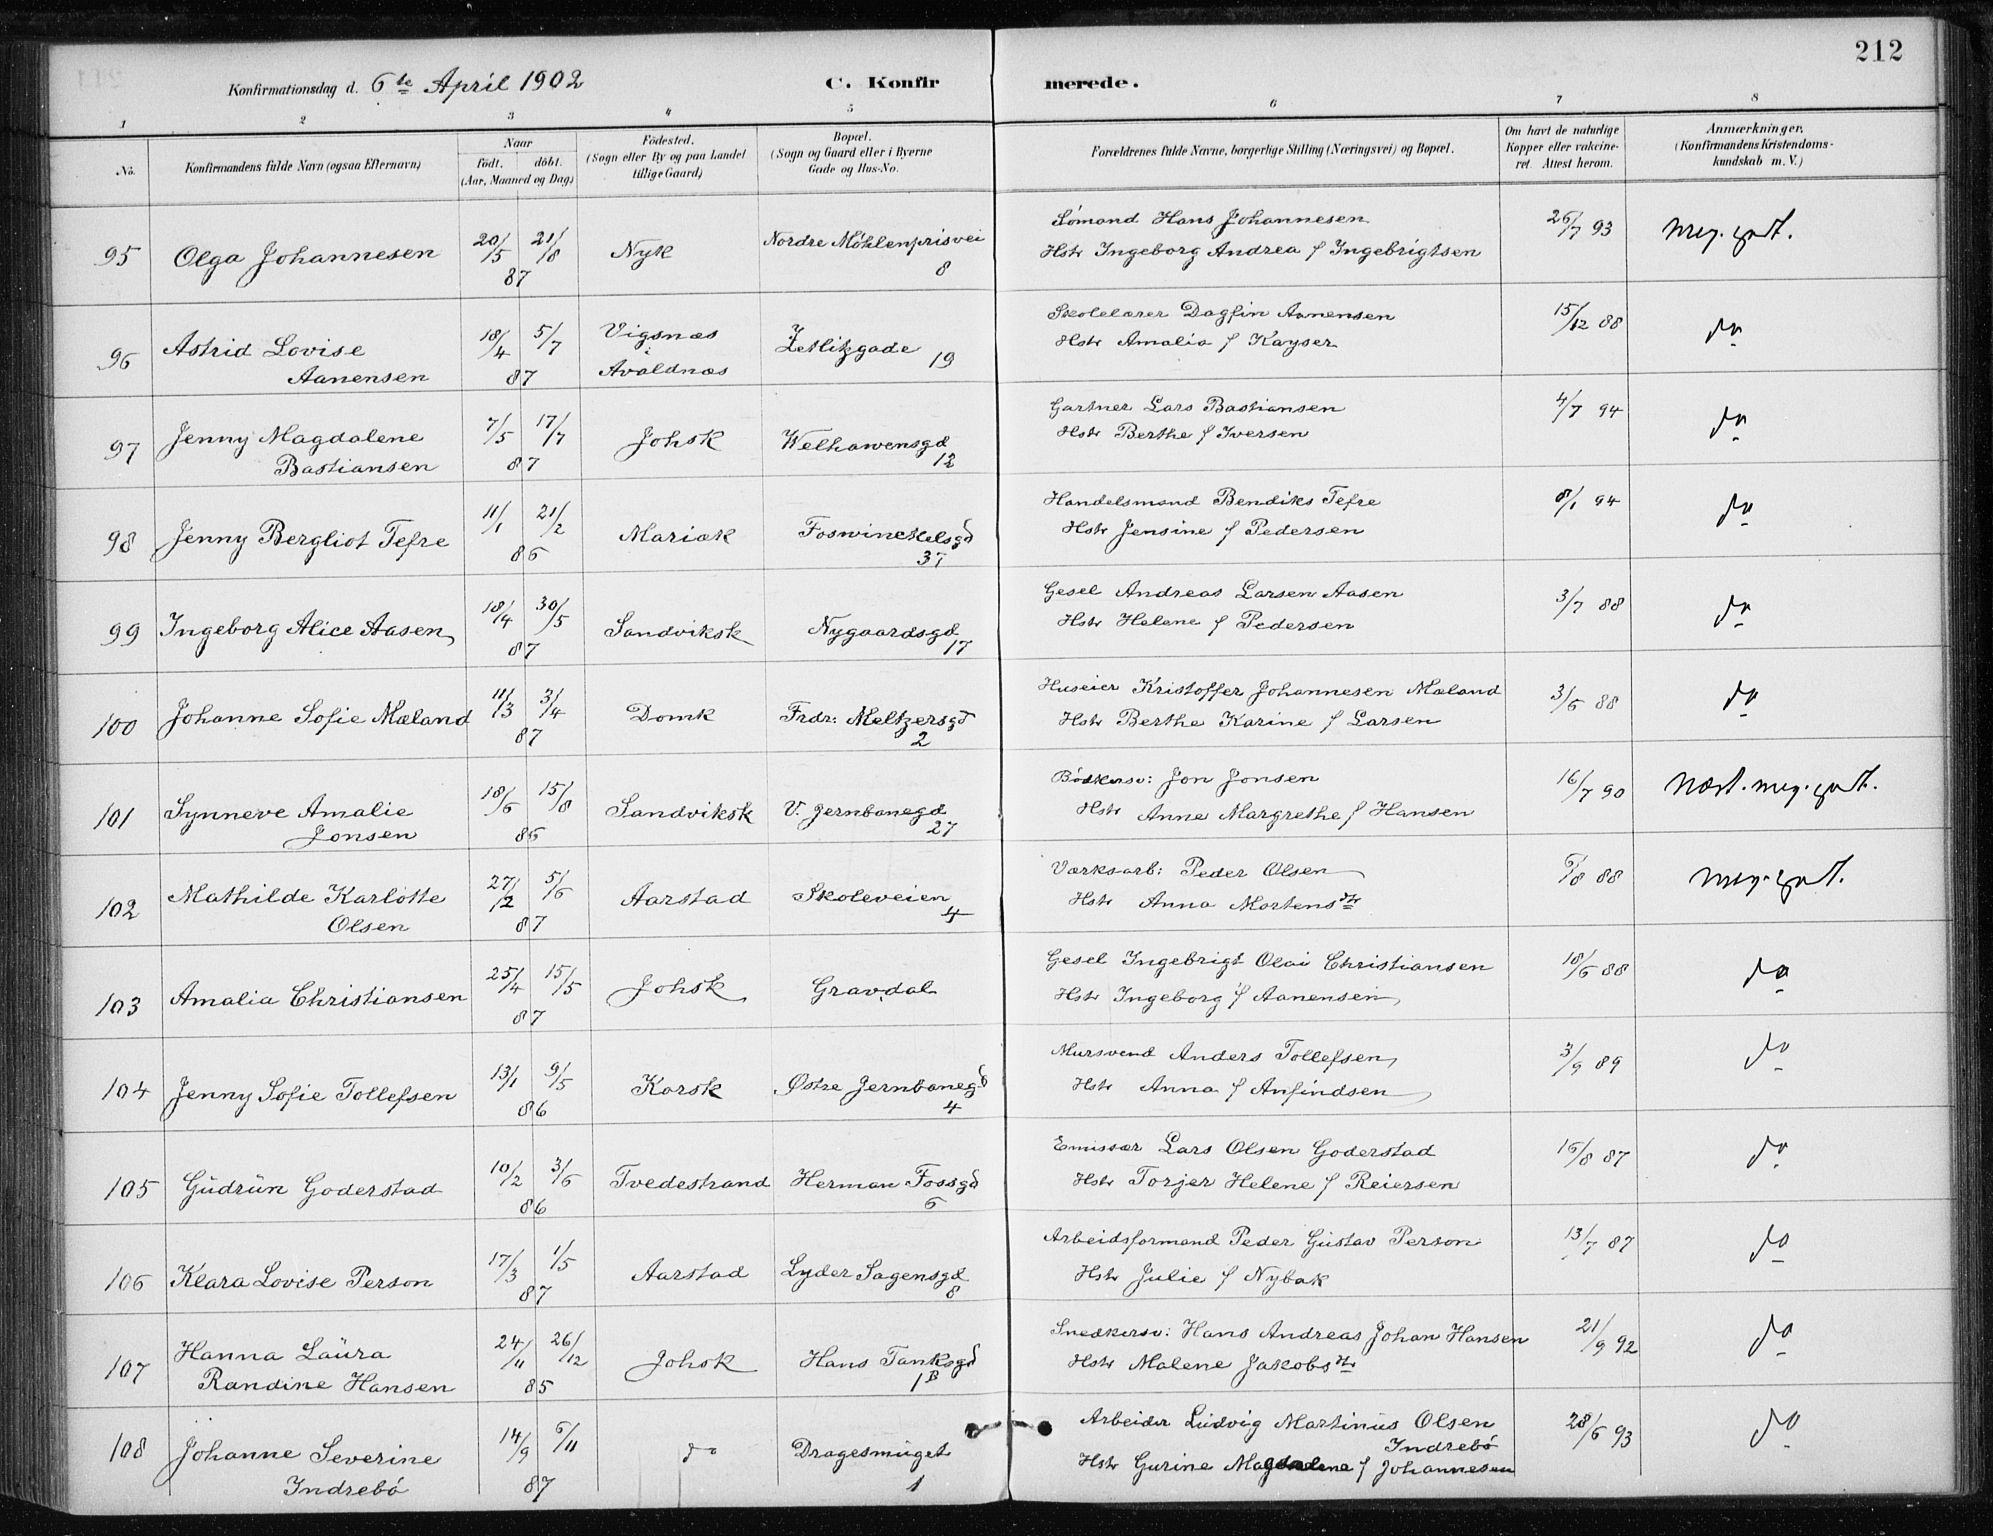 212
Konfirmationsdag d. 6te April 1902
C. Konfirmerede.
1 2 3 4 5 6 7 8
No.
Konfirmandens fulde Navn (ogsaa Efternavn)
Naar
födt. döbt.
(Aar, Maaned og Dag)
Födested.
(Sogn eller By og paa Landet
tillige Gaard)
Bopæl.
(Sogn og Gaard eller i Byerne
Gade og Hus-No.
Forældrenes fulde Navne, borgerlige Stilling (Næringsvei) og Bopæl.
Om havt de naturlige
Kopper eller vakcine-
ret. Attest herom.
Anmærkninger.
(Konfirmandens Kristendoms-
kundskab m. V.)
95 Olga Johannesen 20/5 21/8 87 Nyk Nordre Möhlenprisvei 8
Sömand Hans Johannesen
Hstr Ingeborg Andrea f Ingebrigtsen
26/7 93 meg. godt.
96 Astrid Lovise
Aanensen 18/4 5/7 87 Vigsnæs
Avaldnæs Zetlitzgade 19
Skolelærer Dagfin Aanensen
Hstr Amalia f Kayser
15/12 88 do
97 Jenny Magdalene
Bastiansen 7/5 17/7 87 Johsk Welhawensgd 12
Gartner Lars Bastiansen
Hstr Berthe f Iversen
4/7 94 do
98 Jenny Bergliot Tefre 11/1 21/2 86 Mariæk Foswinckelsgd 37
Handelsmand Bendiks Tefre
Hstr Jensine f Pedersen
8/1 94 do
99 Ingeborg Alice Aasen 18/4 30/5 87 Sandviksk Nygaardsgd 17
Gesel Andreas Larsen Aasen
Hstr Helene f Pedersen
3/7 88 do
100 Johanne Sofie Mæland 11/3 3/4 87 Domk Frdr: Meltzersgd 2
Huseier Kristoffer Johannesen Mæland
Hstr Berthe Karine f Larsen
3/6 88 do
101 Synneve Amalie
Jonsen 18/6 15/8 86 Sandviksk V. Jernbanegd 27
Bödkersv: Jon Jonsen
Hstr Anne Margrethe f Hansen
16/7 90 Næst. meg. godt.
102 Mathilde Karlotte
Olsen 27/12 5/6 87 Aarstad Skoleveien 4
Værksarb: Peder Olsen
Hstr Anna Mortensdtr
6/8 88 meg. godt.
103 Amalia Christiansen 25/4 15/5 87 Johsk Gravdal
Gesel Ingebrigt Olai Christiansen
Hstr Ingeborg f Aanensen
18/6 88 do
104 Jenny Sofie Tollefsen 13/1 9/5 86 Korsk Østre Jernbanegd 4
Mursvend Anders Tollefsen
Hstr Anna f Anfindsen
3/9 89 do
105 Gudrun Goderstad 10/2 3/6 86 Tvedestrand Herman Fossgd 6
Emissær Lars Olsen Goderstad
Hstr Torjer Helene f Reiersen
16/8 87 do
106 Klara Lovise Person 17/3 1/5 87 Aarstad Lyder Sagensgd 8
Arbeidsformand Peder Gustav Person
Hstr Julie f Nybak
13/7 87 do
107 Hanna Laura
Randine Hansen 24/11 26/12 85 Johsk Hans Tanksgd 1B
Snedkersv: Hans Andreas Johan Hansen
Hstr Malene Jakobsdtr
21/9 92 do
108 Johanne Severine
Indrebö 14/9 6/11 87 do Dragesmuget 1
Arbeider Ludvig Martinus Olsen
Indrebö
Hstr Gurine Magdalene f Johannesen
28/6 93 do